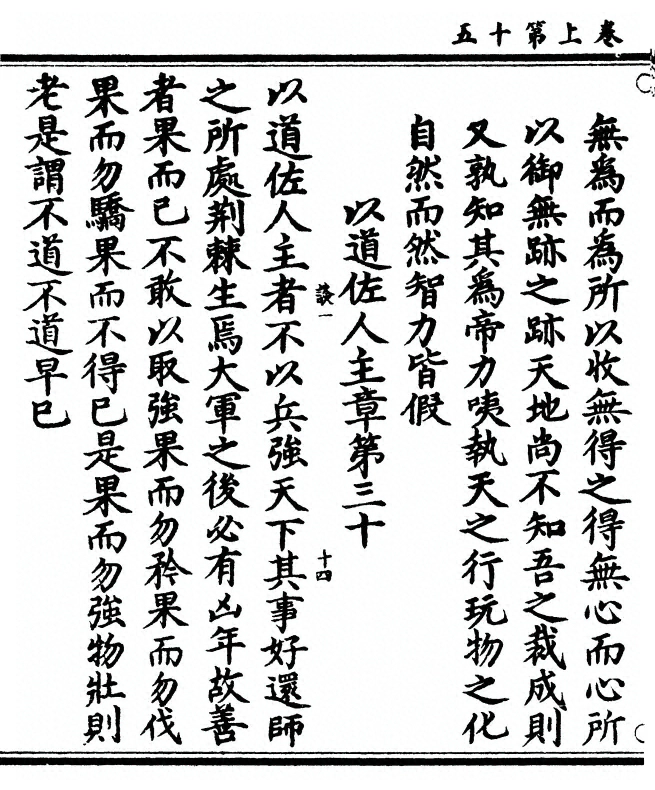 卷上第十五
無為而為所以收無得之得無心而心所
以御無跡之跡天地尚不知吾之裁成則
又孰知其為帝力咦執天之行玩物之化
自然而然智力皆假
以道佐人主章第三十
談一 十四
以道佐人主者不以兵強天下其事好還師
之所處荆棘生焉大軍之後必有凶年故善
者果而已不敢以取強果而勿矜果而勿伐
果而勿驕果而不得已是果而勿強物壯則
老是謂不道不道早已